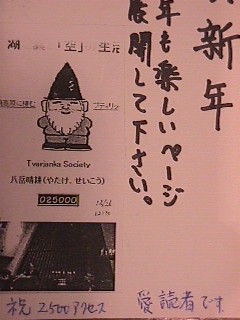 新年
年も楽しいページ
展開して下さい。
湖
「空」の生活
Tvarjanka Society
八岳晴耕(やたけ、せいこう)
025000
祝 2500アクセス
愛読者です